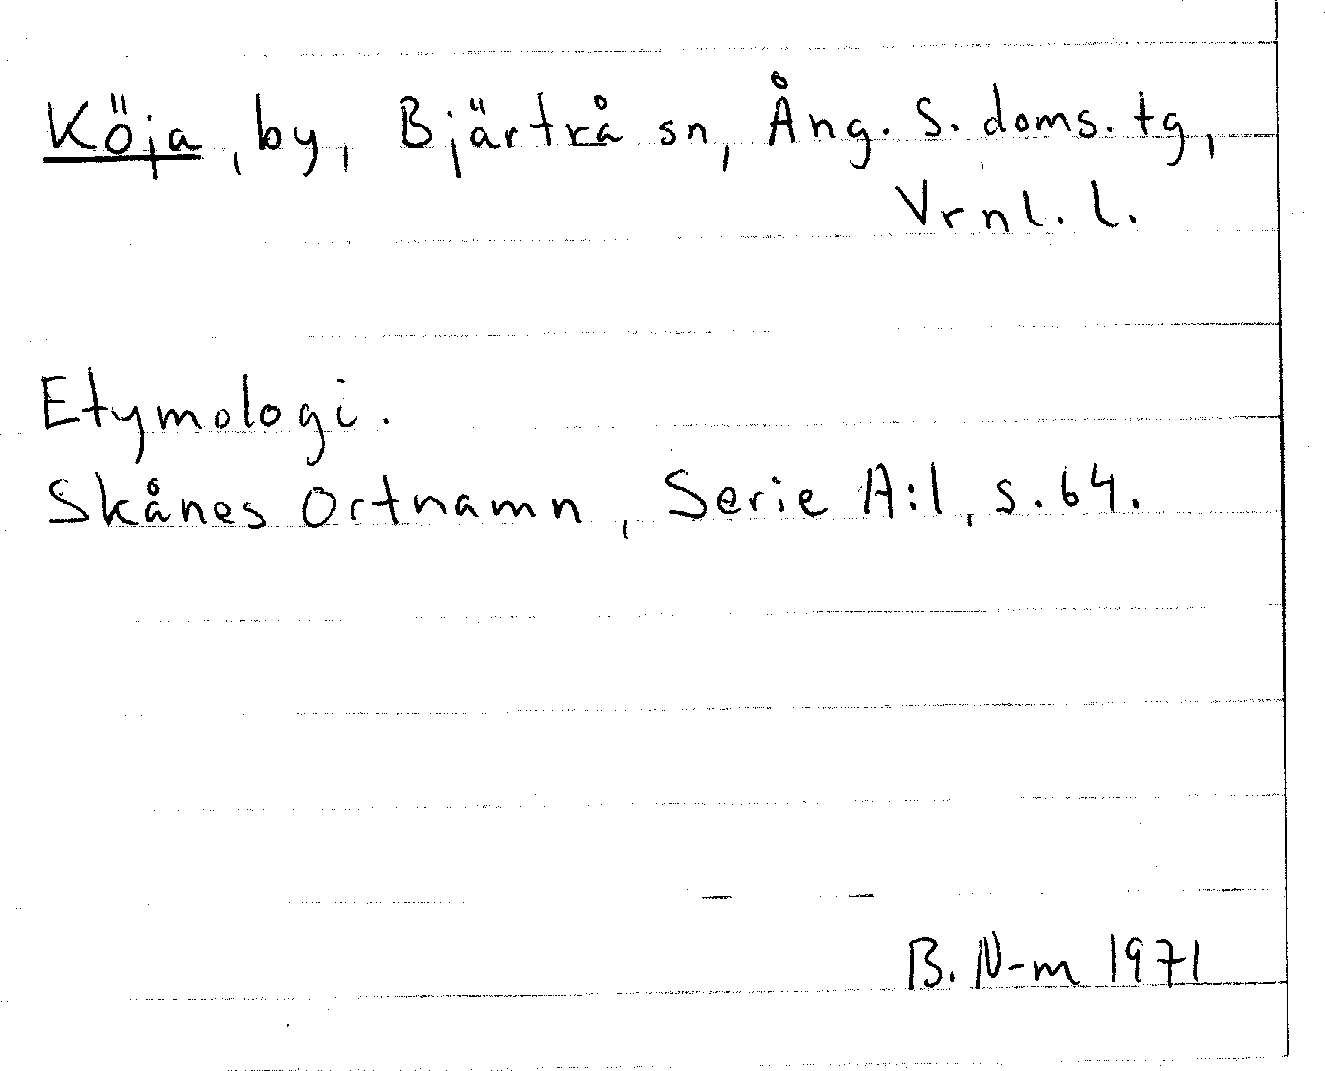 Köja, by, Bjärtrå sn, Ång. S. doms. tg,
Vrnl. l.
Etymologi.
Skånes Ortnamn, Serie A:1, s. 64.
B. N-m 1971